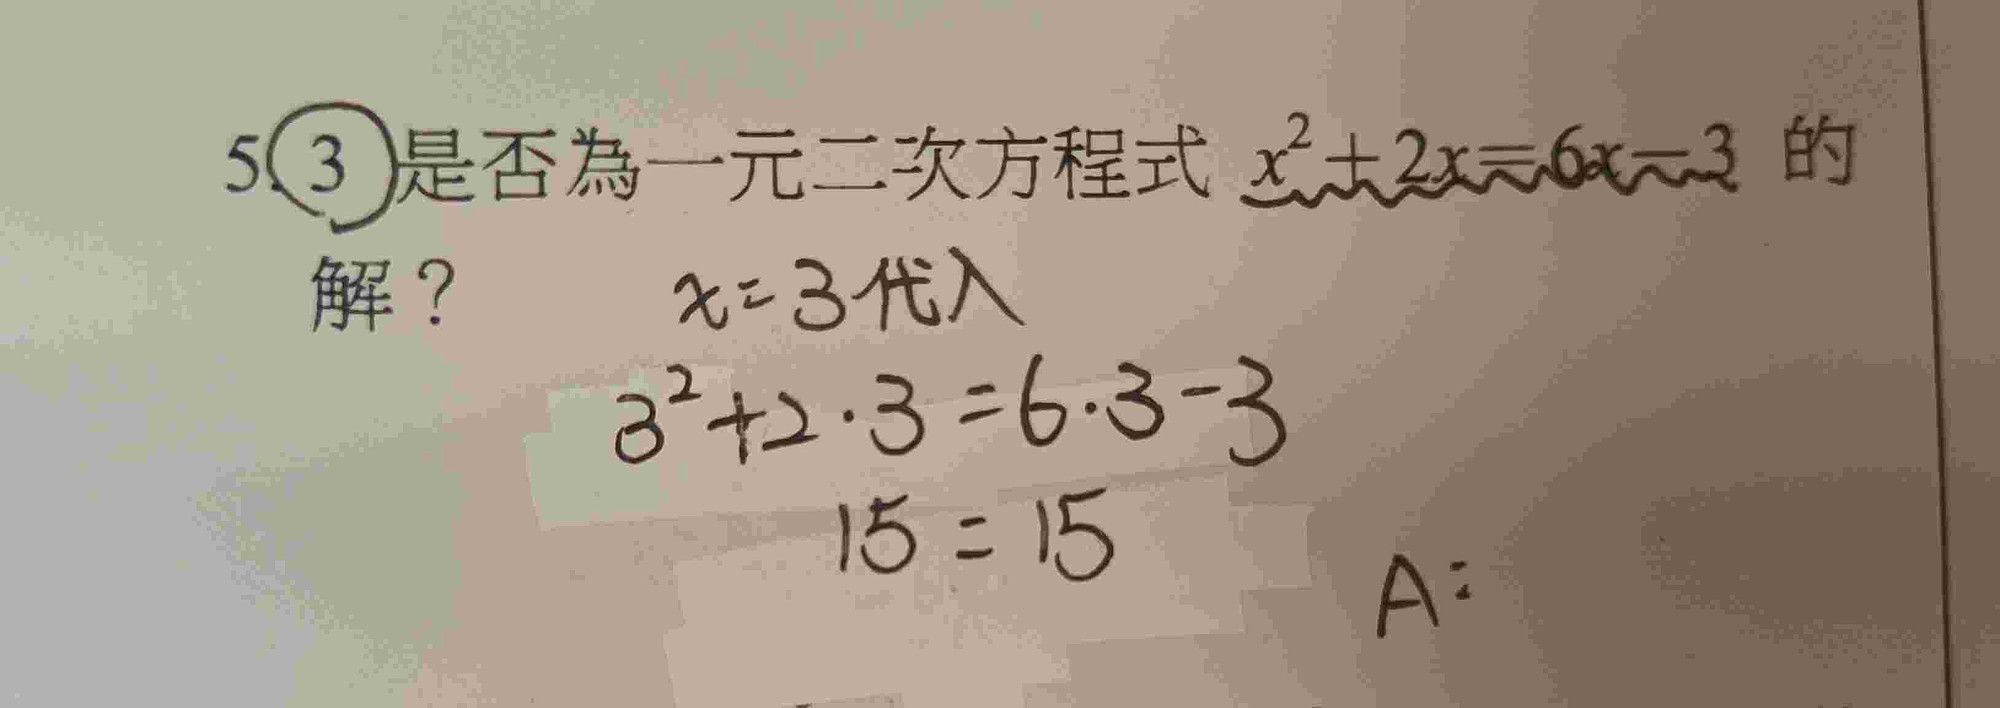 5. 3 是否為一元二次方程式 x²+2x=6x−3 的
解？
x=3代入
3²+2·3=6·3-3
15=15
A: